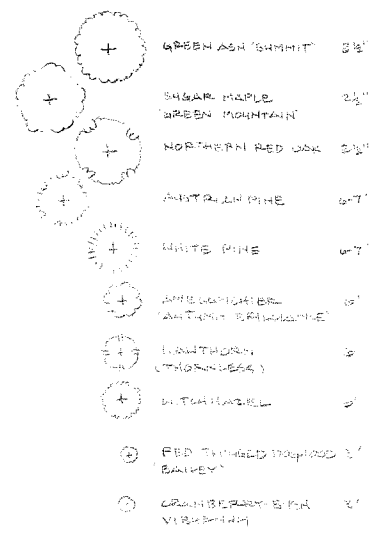 GREEN ASH 'SUMMIT' 2½"
SUGAR MAPLE 2½"
'GREEN MOUNTAIN'
NORTHERN RED OAK 2½"
AUSTRIAN PINE 6-7'
WHITE PINE 6-7'
AMELANCHIER 6'
'AUTUMN BRILLIANCE'
HAWTHORN 6'
(THORNLESS)
WITCHHAZEL 6'
RED TWIGGED DOGWOOD 3'
'BAILEY'
CRANBERRY BUSH
VIBURNUM